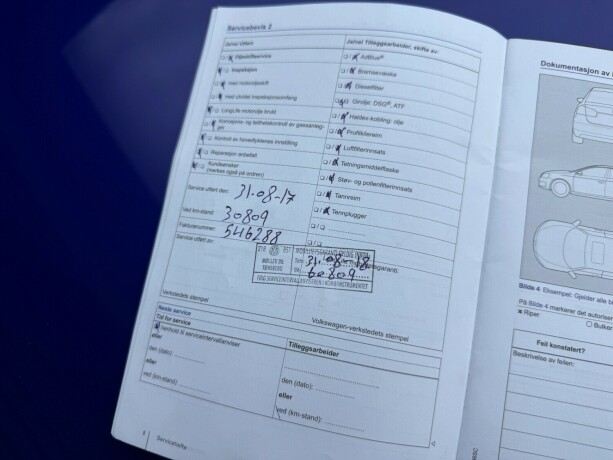 Servicebevis 2
Ja/nei Utført
Oljeskiftservice
Inspeksjon
med motoroljeskift
med utvidet inspeksjonsomfang
LongLife motorolje brukt
Korrosjons- og tetthetskontroll av gassanlegg
Kontroll av hovedlyktenes innstilling
Reparasjon anbefalt
Kundeønsker
(merkes også på ordren)
Service utført den: 31-08-17
Ved km-stand: 30809
Fakturanummer: 546288
Service utført av:
Verkstedets stempel
Ja/nei Tilleggsarbeider, skifte av:
AdBlue®
Bremsevæske
Dieselfilter
Girolje: DSG®, ATF
Haldex-kobling: olje
Profilkilereim
Luftfilterinnsats
Tetningsmiddelflaske
Støv- og pollenfilterinnsats
Tannreim
Tennplugger
31.08
60809
Volkswagen-verkstedets stempel
Neste service
Tid for service
I henhold til serviceintervallanviser
eller
den (dato):
eller
ved (km-stand):
Tilleggsarbeider
den (dato):
eller
ved (km-stand):
8 Servicehefte
Dokumentasjon av
Bilde 4 Eksempel: Gjelder alle
På Bilde 4 markerer det autoriser
Riper
Bulker
Feil konstatert?
Beskrivelse av feilen: